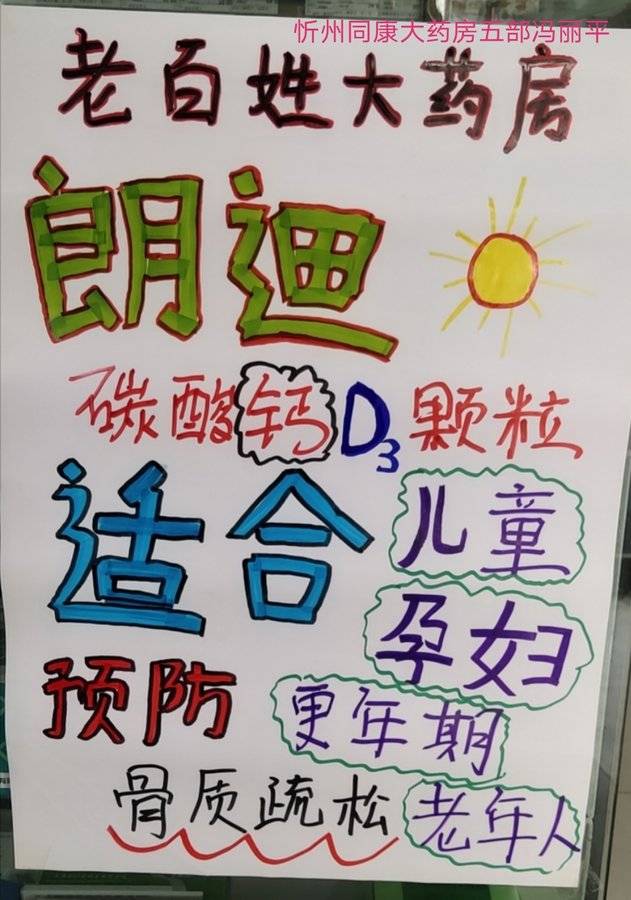 忻州同康大药房五部冯丽平
老百姓大药房
朗迪
碳酸钙D3颗粒
适合
儿童
孕妇
更年期
老年人
预防
骨质疏松